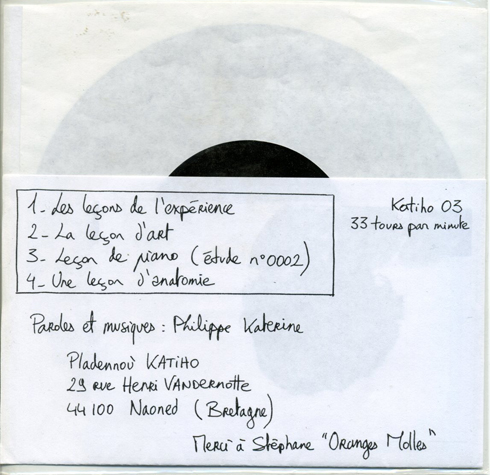 1_ Les leçons de l'expérience
2_ La leçon d'art
3_ Leçon de piano (étude n°0002)
4_ Une leçon d'anatomie
Katiho 03
33 tours par minute
Paroles et musiques : Philippe Katerine
Pladennoù KATIHO
29 rue Henri VANDERNOTTE
44100 Naoned (Bretagne)
Merci à Stéphane "Oranges Molles"